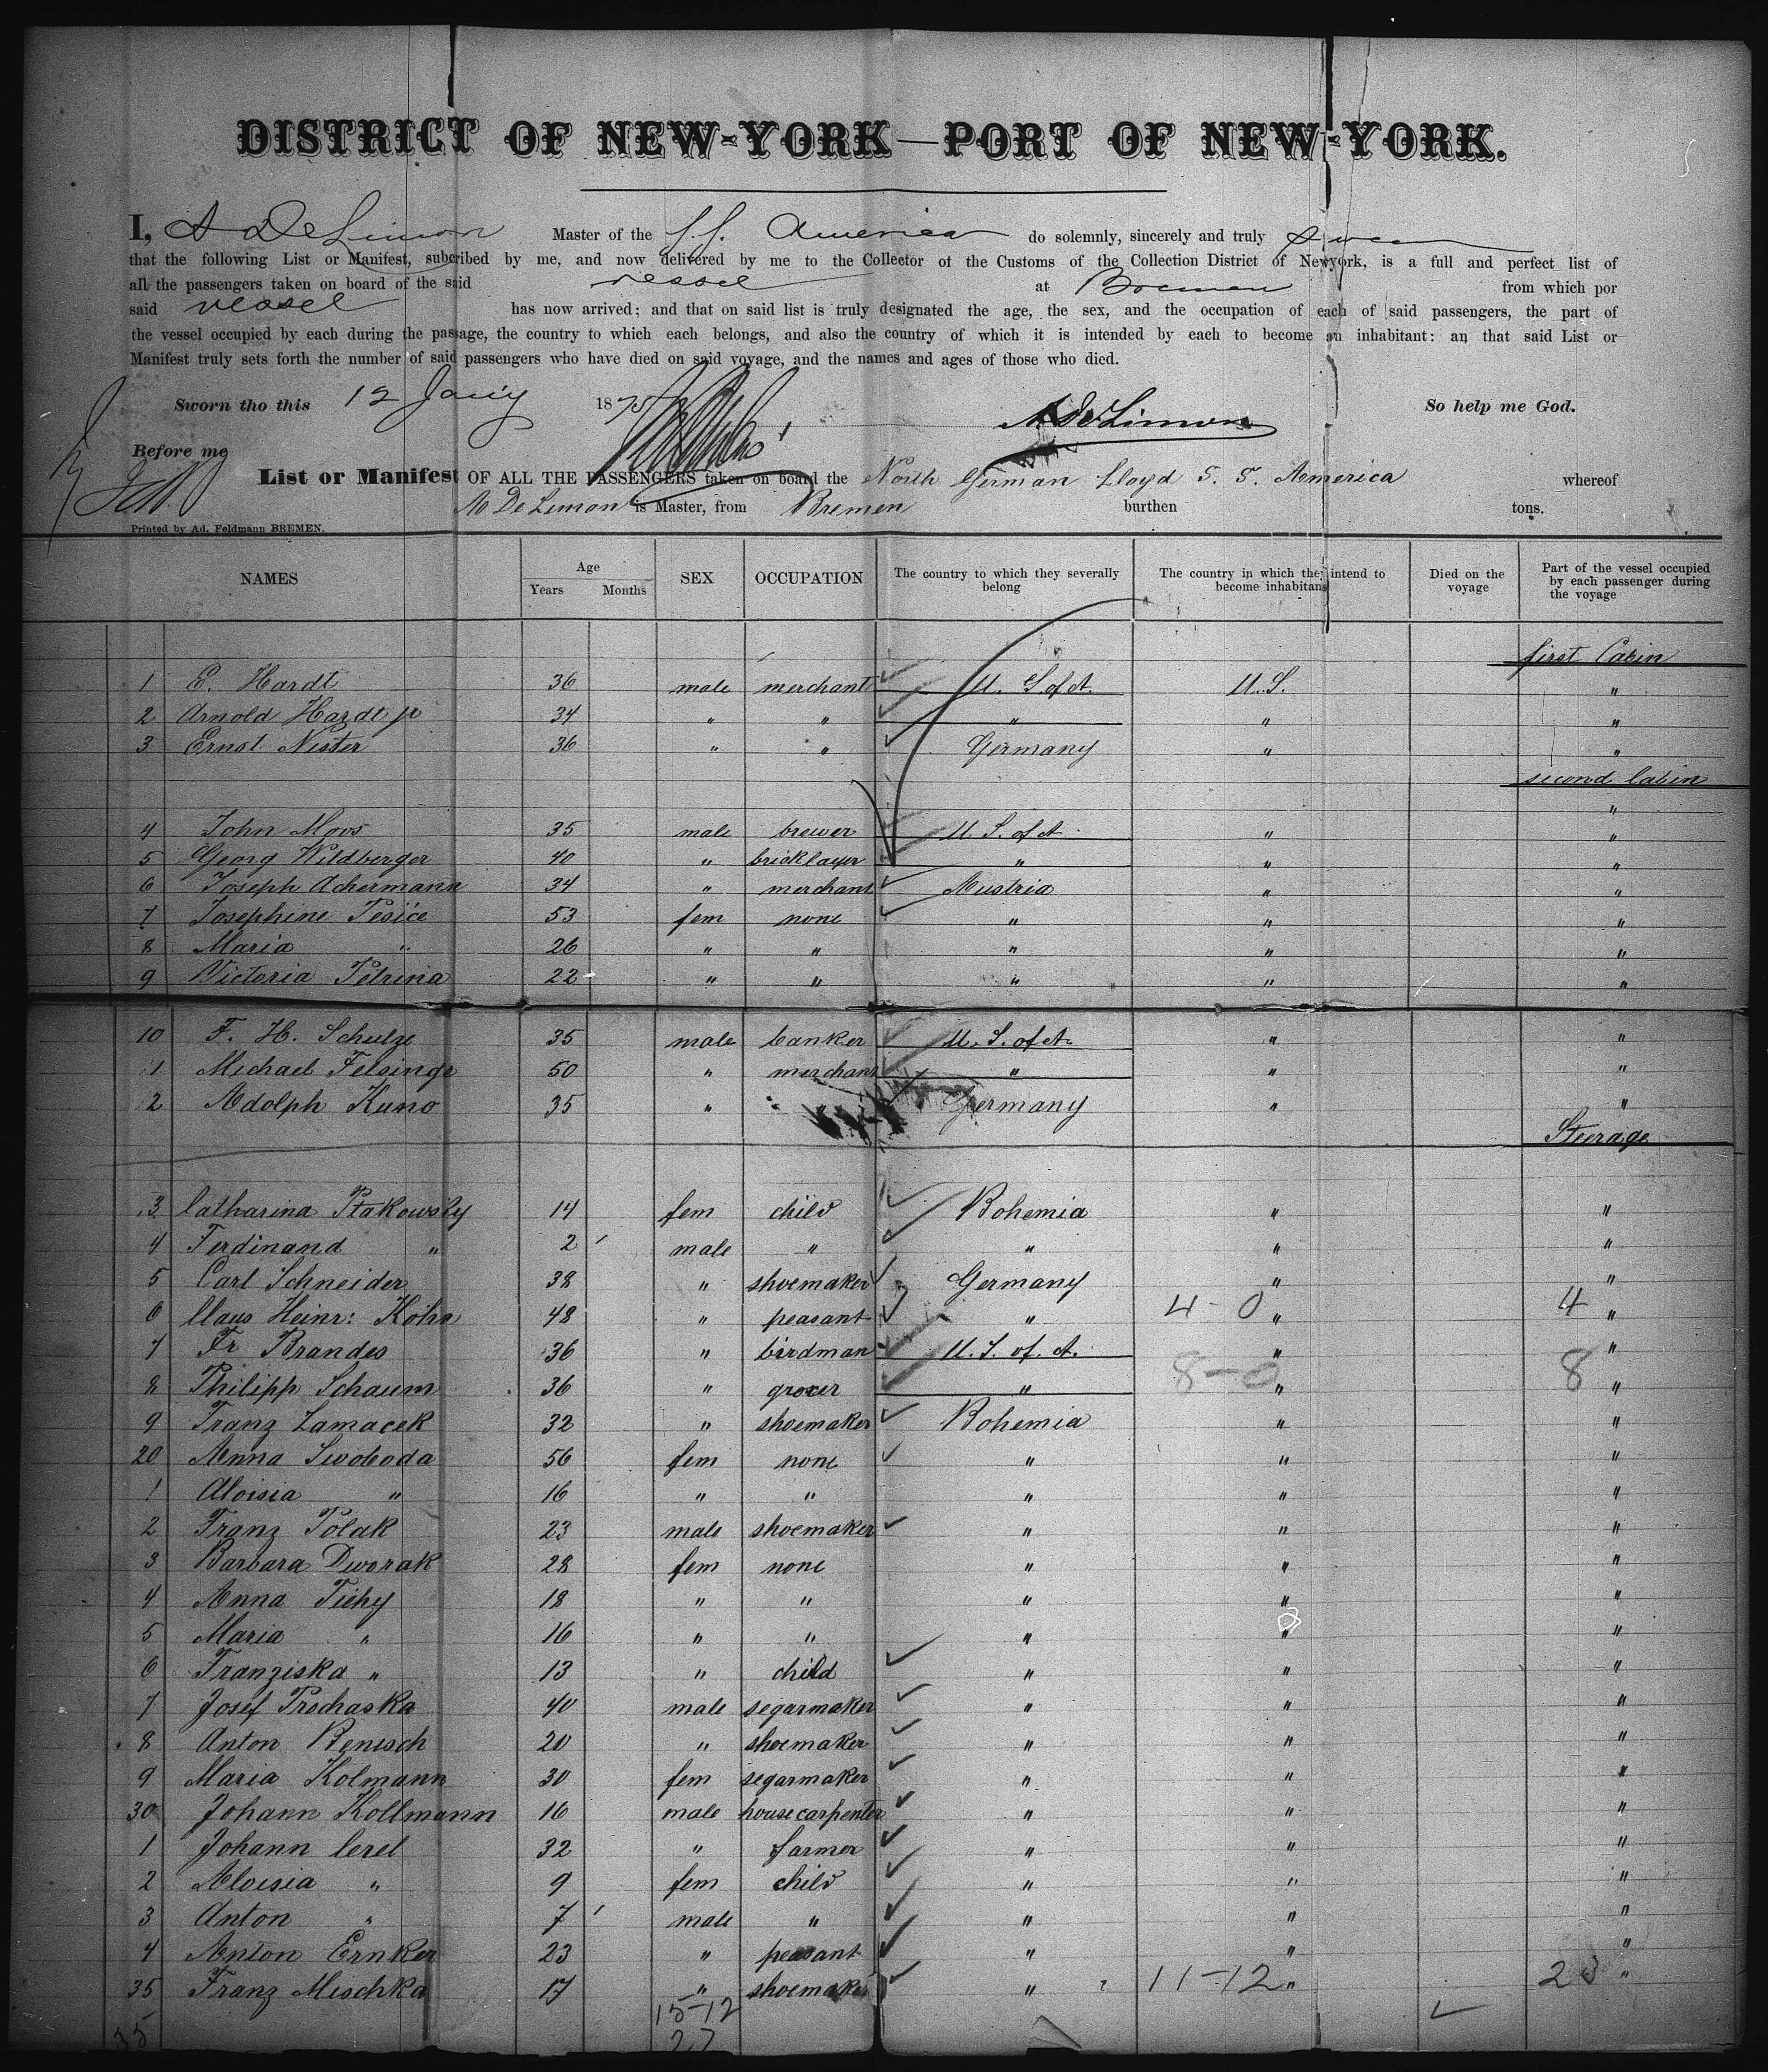 DISTRICT OF NEW-YORK—PORT OF NEW-YORK.
I, A DeLimon Master of the S.S. America do solemnly, sincerely and truly swear
that the following List or Manifest, subcribed by me, and now delivered by me to the Collector of the Customs of the Collection District of Newyork, is a full and perfect list of
all the passengers taken on board of the said vessel at Bremen from which por
said vessel has now arrived; and that on said list is truly designated the age, the sex, and the occupation of each of said passengers, the part of
the vessel occupied by each during the passage, the country to which each belongs, and also the country of which it is intended by each to become an inhabitant: an that said List or
Manifest truly sets forth the number of said passengers who have died on said voyage, and the names and ages of those who died.
Sworn tho this 12 Jany 1875 A DeLimon So help me God.
Before me
List or Manifest OF ALL THE PASSENGERS taken on board the North German Lloyd S. S. America whereof
A DeLimon is Master, from Bremen burthen tons.
Printed by Ad. Feldmann BREMEN.
NAMES Age Years Months SEX OCCUPATION The country to which they severally belong The country in which they intend to become inhabitans Died on the voyage Part of the vessel occupied by each passenger during the voyage
first Cabin
1 E. Hardt 36 male merchant U. S of A. U.S. "
2 Arnold Hardt jr 34 " " " " "
3 Ernst Nister 36 " " Germany " "
second Cabin
"
4 John Moos 35 male brewer U. S. of A " "
5 Georg Wildberger 40 " bricklayer " " "
6 Joseph Achermann 34 " merchant Austria " "
7 Josephine Pesice 53 fem none " " "
8 Maria " 26 " " " " "
9 Victoria Petrina 22 " " " " "
10 F. H. Schulze 35 male banker U. S. of A. " "
1 Michael Felsinge 50 " merchant " " "
2 Adolph Kuno 35 " " Germany " "
Steerage
3 Catharina Ptakowsky 14 fem child Bohemia " "
4 Ferdinand " 2 male " " " "
5 Carl Schneider 38 " shoemaker Germany " "
6 Claus Heinr: Köhn 48 " peasant " 4-0 " 4 "
7 Fr Brandes 36 " birdman U. S. of. A. " "
8 Philipp Schaum 36 " grocer " 8-0 " 8 "
9 Franz Zamacek 32 " shoemaker Bohemia " "
20 Anna Swoboda 56 fem none " " "
1 Aloisia " 16 " " " " "
2 Franz Polak 23 male shoemaker " " "
3 Barbara Dworak 28 fem none " " "
4 Anna Tichy 18 " " " " "
5 Maria " 16 " " " " "
6 Franziska " 13 " child " " "
7 Josef Prochaska 40 male segarmaker " " "
8 Anton Benesch 20 " shoemaker " " "
9 Maria Kolmann 30 fem segarmaker " " "
30 Johann Kollmann 16 male housecarpenter " " "
1 Johann Cerel 32 " farmer " " "
2 Aloisia " 9 fem child " " "
3 Anton " 7 male " " " "
4 Anton Ernker 23 " peasant " " "
35 Franz Mischka 17 " shoemaker " 11-12 " 23 "
15-12
35 27